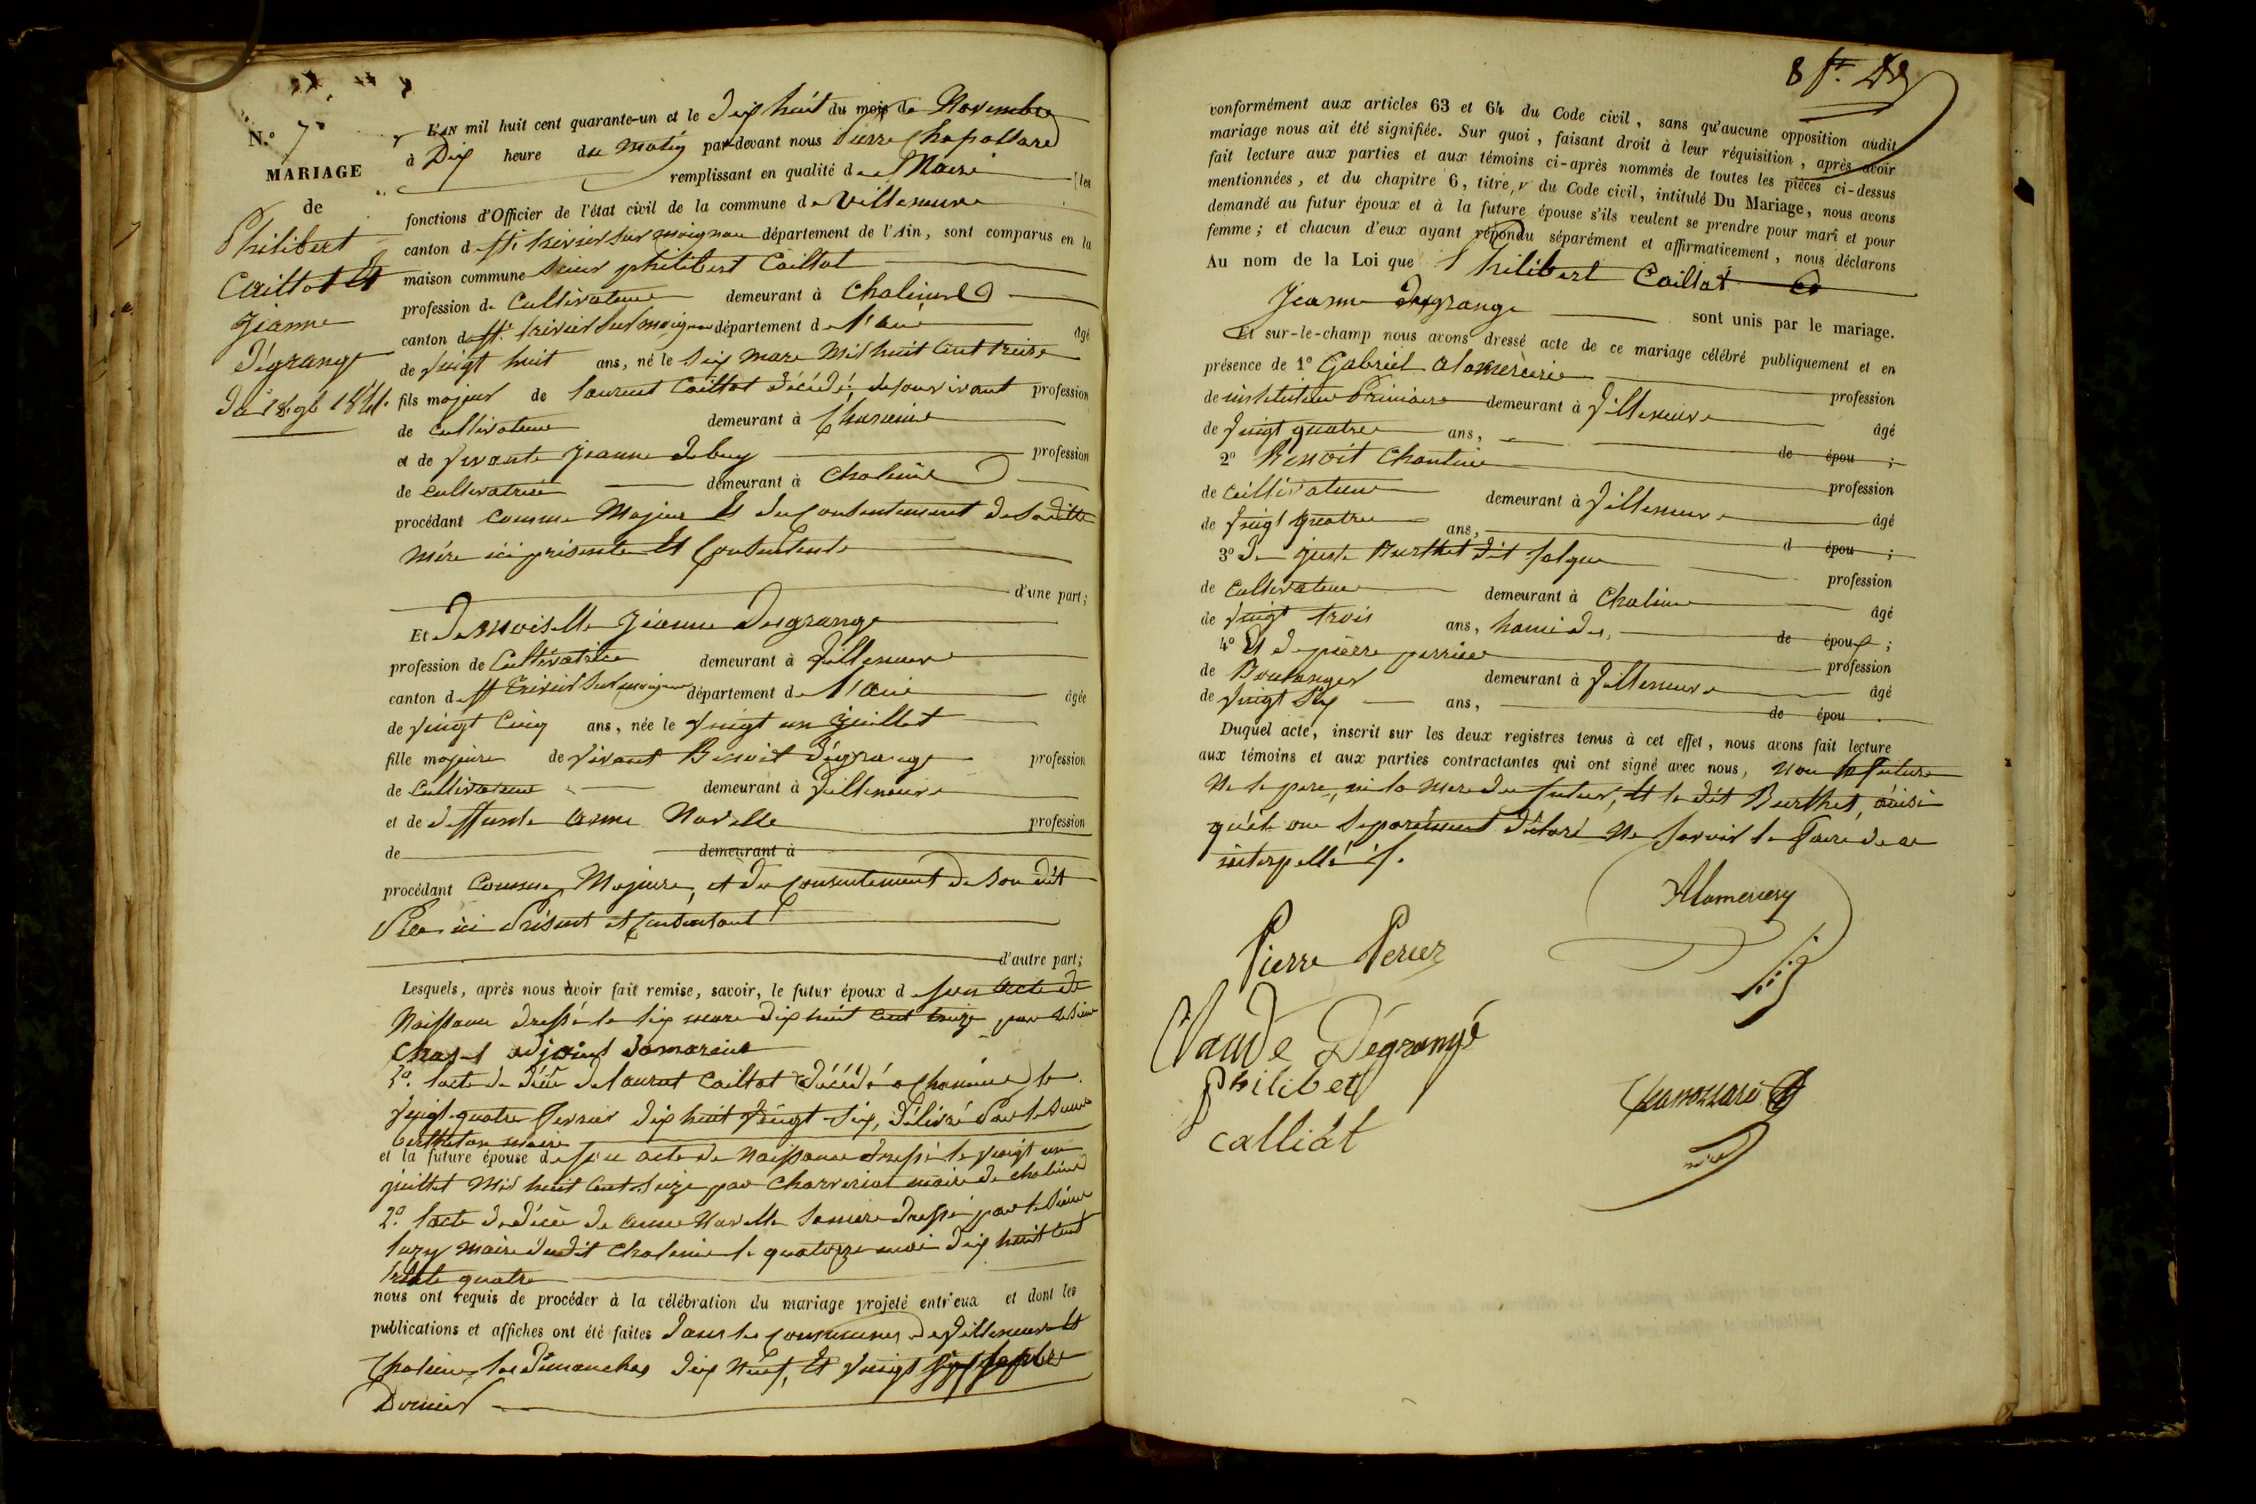 N.° 7
MARIAGE
de
Philibert
Caillat Et
Jeanne
Dégrange
Du 18 9bre 1841.
L'AN mil huit cent quarante-un et le dix huit du mois de Novembre
à Dix heure du matin par-devant nous Pierre Chapollard
remplissant en qualité de Maire les
fonctions d'Officier de l'état civil de la commune de Villeneuve
canton de St. Trivier sur moignan département de l'Ain, sont comparus en la
maison commune Sieur philibert Caillat
profession de Cultivateur demeurant à Chaleins
canton de St. Trivier sur moignan département de l'ain âgé
de vingt huit ans, né le six mars mil huit cent treize
fils majeur de laurent Caillat décédé, de son vivant profession
de cultivateur demeurant à Chaneins
et de vivante jeanne profession
de cultivatrice demeurant à Chaleins
procédant comme Majeur Et du Consentement de sa ditte
mère ici présente Et Consentente
d'une part ;
Et Demoiselle Jeanne Desgrange
profession de Cultivatrice demeurant à Villeneuve
canton de St Trivier sur moignan département de l'ain âgée
de vingt cinq ans, née le vingt un juillet
fille majeure de vivant Benoit Dégrange profession
de Cultivateur demeurant à Villeneuve
et de deffunte anne Navelle profession
de demeurant à
procédant comme Majeure, et du consentement de son dit
Père ici Présent et Consentant
d'autre part ;
Lesquels, après nous avoir fait remise, savoir, le futur époux de son acte de
Naissance dressé le six mars dix huit cent treize par le sieur
adjoint
2°. l'acte de décès de laurent Caillat décédé a Chaneins le
vingt quatre fevrier dix huit vingt six, délivré par le sieur
maire
et la future épouse de son acte de Naissance dressé le vingt un
juillet mil huit cent seize par Charverian maire de chaleins
2°. l'acte de décès de anne Navelle sa mere dressé par le Sieur
maire dudit Chaleins le quatorze mai dix huit cent
trente quatre
nous ont requis de procéder à la célébration du mariage projeté entr'eux et dont les
publications et affiches ont été faites dans les communes de Villeneuve Et
Chaleins les Dimanches dix Neuf, Et vingt six septbre
Dernier
8 ft.
conformément aux articles 63 et 64 du Code civil, sans qu'aucune opposition audit
mariage nous ait été signifiée. Sur quoi, faisant droit à leur réquisition, après avoir
fait lecture aux parties et aux témoins ci-après nommés de toutes les pièces ci-dessus
mentionnées, et du chapitre 6, titre v du Code civil, intitulé Du Mariage, nous avons
demandé au futur époux et à la future épouse s'ils veulent se prendre pour mari et pour
femme ; et chacun d'eux ayant répondu séparément et affirmativement, nous déclarons
Au nom de la Loi que Philibert Caillat Et
Jeanne Desgrange sont unis par le mariage.
Et sur-le-champ nous avons dressé acte de ce mariage célébré publiquement et en
présence de 1° Gabriel alamercerie profession
de instituteur Primaire demeurant à Villeneuve âgé
de vingt quatre ans, de épou ;
2° Benoit Chantin profession
de cultivateur demeurant à Villeneuve âgé
de vingt quatre ans, d épou ;
3° De juste Burthet dit profession
de cultivateur demeurant à Chaleins âgé
de vingt trois ans, de époux ;
4° Et de pierre perrier profession
de Boulanger demeurant à Villeneuve âgé
de vingt six ans, de épou .
Duquel acte, inscrit sur les deux registres tenus à cet effet, nous avons fait lecture
aux témoins et aux parties contractantes qui ont signé avec nous, non la future
Ne le pere, ni la Mere du futur, Et le dit Burthet, ainsi
qu'ils ont séparément déclaré Ne savoir le faire de ce
interpellés.
Alamercery
Pierre Perier
Claude Dégrange
philibet
calliat